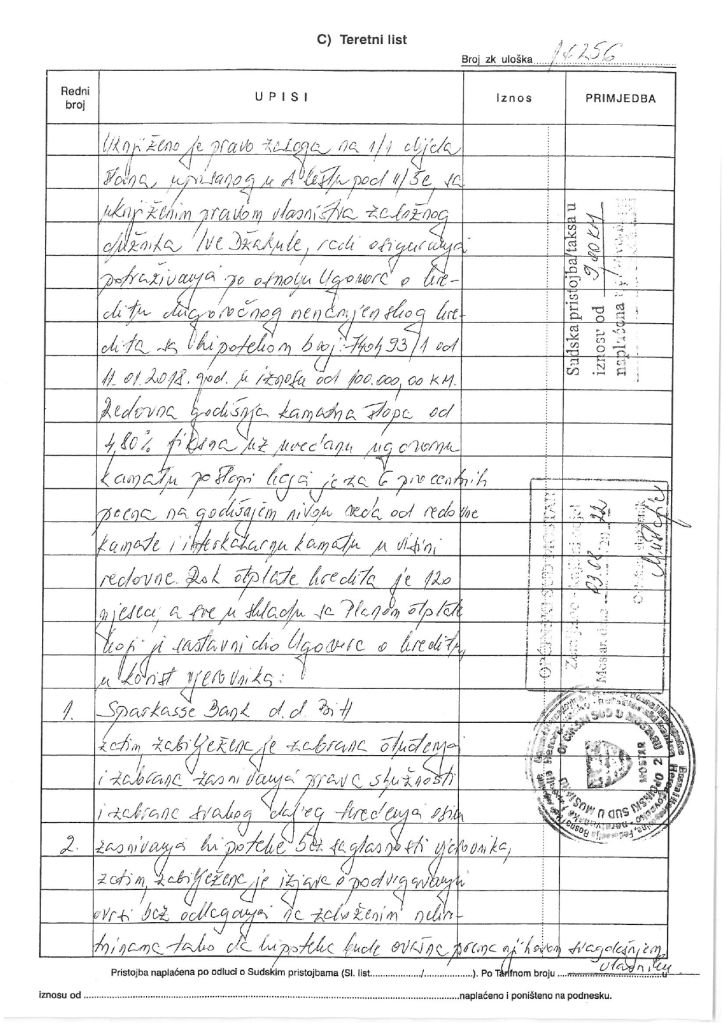 C) Teretni list
Broj zk uloška 14256
Redni broj
UPISI
Iznos
PRIMJEDBA
Uknjiženo je pravo zaloga na 1/1 dijela
stana, upisanog u A listu pod II/5e, sa
uknjiženim pravom vlasništva založnog
dužnika Ive Džakule, radi osiguranja
potraživanja po osnovu Ugovora o kre-
ditu dugoročnog nenamjenskog kre-
dita sa hipotekom broj:
11.01.2018. god. u iznosu od 100.000,00 KM.
Redovna godišnja kamatna stopa od
4,80% fiksna uz uvedanu ugovornu
kamatu po stopi koja je za 6 procentnih
poena na godišnjem nivou veća od redovne
kamate i interkalarnu kamatu u visini
redovne. Rok otplate kredita je 120
mjeseci, a sve u skladu sa Planom otplate
koji je sastavni dio Ugovora o kreditu,
u korist vjerovnika:
1. Sparkasse Bank d.d BiH
zatim zabilježena je zabrana otuđenja
i zabrana zasnivanja prava služnosti
i zabrana svakog daljeg uređenja osim
2. zasnivanja hipoteke bez saglasnosti vjerovnika,
zatim, zabilježena je izjava o podvrgavanju
ovrsi bez odlaganja na založenim nekre-
tninama tako da hipoteka bude ovršna prema njihovom svagdašnjem
vlasniku
Sudska pristojba/taksa u
iznosu od 9,00 KM
naplaćena
OPĆINSKI SUD U MOSTARU
OPĆINSKI SUD U MOSTARU
MOSTAR
2
Pristojba naplaćena po odluci o Sudskim pristojbama (Sl. list....................../..............). Po Tarifnom broju
iznosu od ..........naplaćeno i poništeno na podnesku.